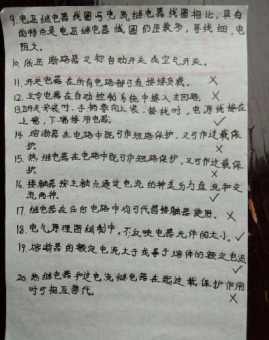 9.电压继电器线圈与电流继电器线圈相比,具有
的特点是电压继电器线圈的匝数多,导线细,电
阻大。
10.低压断路器又称自动开关或空气开关。
11.开关电器在所有电路都可直接接负载。 ×
12.主令电器在自动控制系统中接入主回路。 ×
13.刀开关安装时,手柄要向上装。接线时,电源线接在
上端,下端接用电器。 ✓
14.熔断器在电路中既可作短路保护,又可作过载保
护 ×
15.热继电器在电路中既可作短路保护,又可作过载保
护。 ×
16.接触器按主触点通过电流的种类分为直流和交
流两种。 ✓
17.继电器在任何电路中均可代替接触器使用。 ×
18.电气原理图绘制中,不反映电器元件的大小。 ✓
19.熔断器的额定电流大于或等于熔体的额定电流
✓
20.热继电器和过电流继电器在起过载保护作用
时可相互替代。 ×